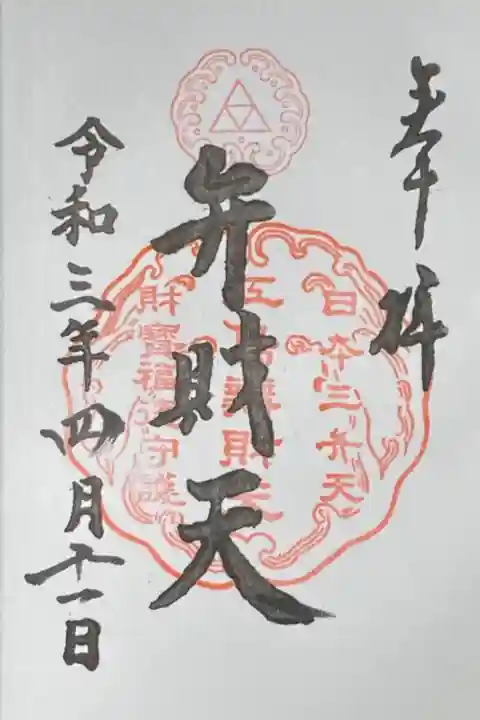 奉拝
日本三弁天
江島辨財天
弁財天
財寶福徳守護
令和三年四月十一日